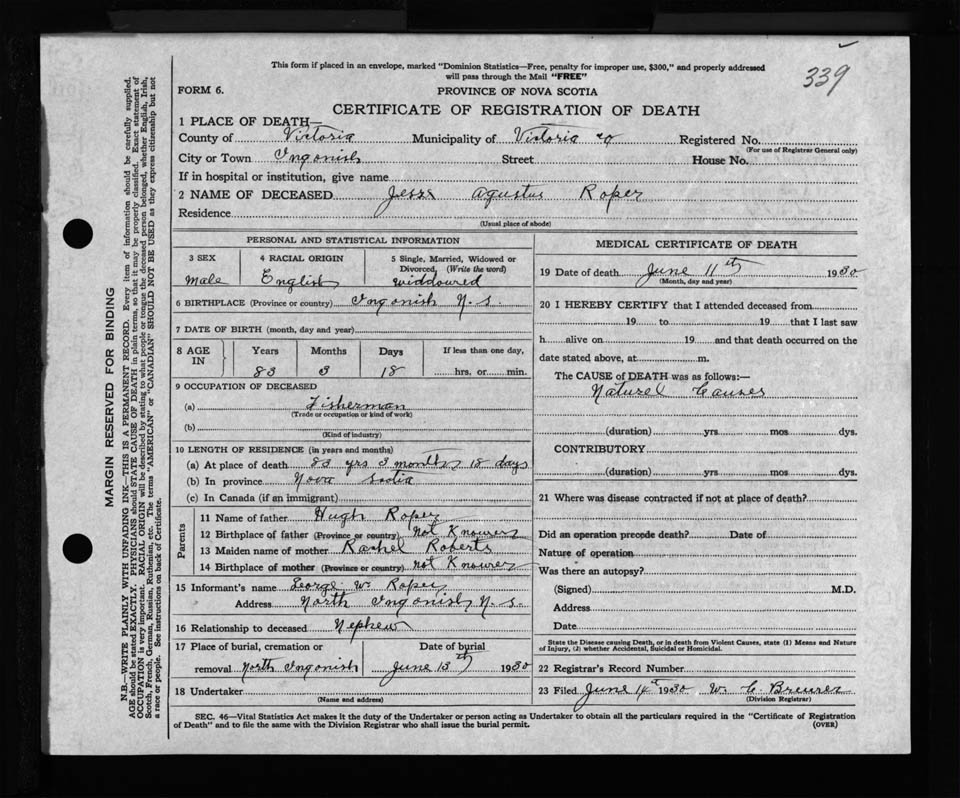 339
This form if placed in an envelope, marked "Dominion Statistics—Free, penalty for improper use, $300," and properly addressed
will pass through the Mail "FREE"
FORM 6. PROVINCE OF NOVA SCOTIA
CERTIFICATE OF REGISTRATION OF DEATH
1 PLACE OF DEATH—
County of Victoria Municipality of Victoria Co Registered No.
(For use of Registrar General only)
City or Town Ingonish Street House No.
If in hospital or institution, give name
2 NAME OF DECEASED Jesse Agustus Roper
Residence
(Usual place of abode)
PERSONAL AND STATISTICAL INFORMATION
3 SEX 4 RACIAL ORIGIN 5 Single, Married, Widowed or
Divorced, (Write the word)
Male English widdowred
6 BIRTHPLACE (Province or country) Ingonish N. S.
7 DATE OF BIRTH (month, day and year)
8 AGE IN Years Months Days If less than one day,
83 3 18 hrs. or min.
9 OCCUPATION OF DECEASED
(a) Fisherman
(Trade or occupation or kind of work)
(b)
(Kind of industry)
10 LENGTH OF RESIDENCE (in years and months)
(a) At place of death 83 yrs 3 months 18 days
(b) In province Nova Scotia
(c) In Canada (if an immigrant)
Parents
11 Name of father Hugh Roper
12 Birthplace of father (Province or country) not
13 Maiden name of mother Rachel Roberts
14 Birthplace of mother (Province or country) not
15 Informant's name George W. Roper
Address North Ingonish N. S.
16 Relationship to deceased Nephew
17 Place of burial, cremation or Date of burial
removal North Ingonish June 13th 1930
18 Undertaker
(Name and address)
MEDICAL CERTIFICATE OF DEATH
19 Date of death June 11th 1930
(Month, day and year)
20 I HEREBY CERTIFY that I attended deceased from
19 to 19 that I last saw
h alive on 19 and that death occurred on the
date stated above, at m.
The CAUSE of DEATH was as follows:—
Naturel Causes
(duration) yrs mos dys.
CONTRIBUTORY
(duration) yrs. mos. dys.
21 Where was disease contracted if not at place of death?
Did an operation precede death? Date of
Nature of operation
Was there an autopsy?
(Signed) M.D.
Address
Date
State the Disease causing Death, or in death from Violent Causes, state (1) Means and Nature
of Injury, (2) whether Accidental, Suicidal or Homicidal.
22 Registrar's Record Number
23 Filed June 14th 1930 W. C.
(Division Registrar)
SEC. 46—Vital Statistics Act makes it the duty of the Undertaker or person acting as Undertaker to obtain all the particulars required in the "Certificate of Registration
of Death" and to file the same with the Division Registrar who shall issue the burial permit. (OVER)
MARGIN RESERVED FOR BINDING
N.B.—WRITE PLAINLY WITH UNFADING INK—THIS IS A PERMANENT RECORD. Every item of information should be carefully supplied.
AGE should be stated EXACTLY. PHYSICIANS should STATE CAUSE OF DEATH in plain terms, so that it may be properly classified. Exact statement of
OCCUPATION is very important. RACIAL ORIGIN will be described by stating to what people or tongue the deceased person belonged, whether English, Irish,
Scotch, French, German, Russian, Ruthenian, etc. The terms "AMERICAN" or "CANADIAN" SHOULD NOT BE USED as they express citizenship but not
a race or people. See instructions on back of Certificate.